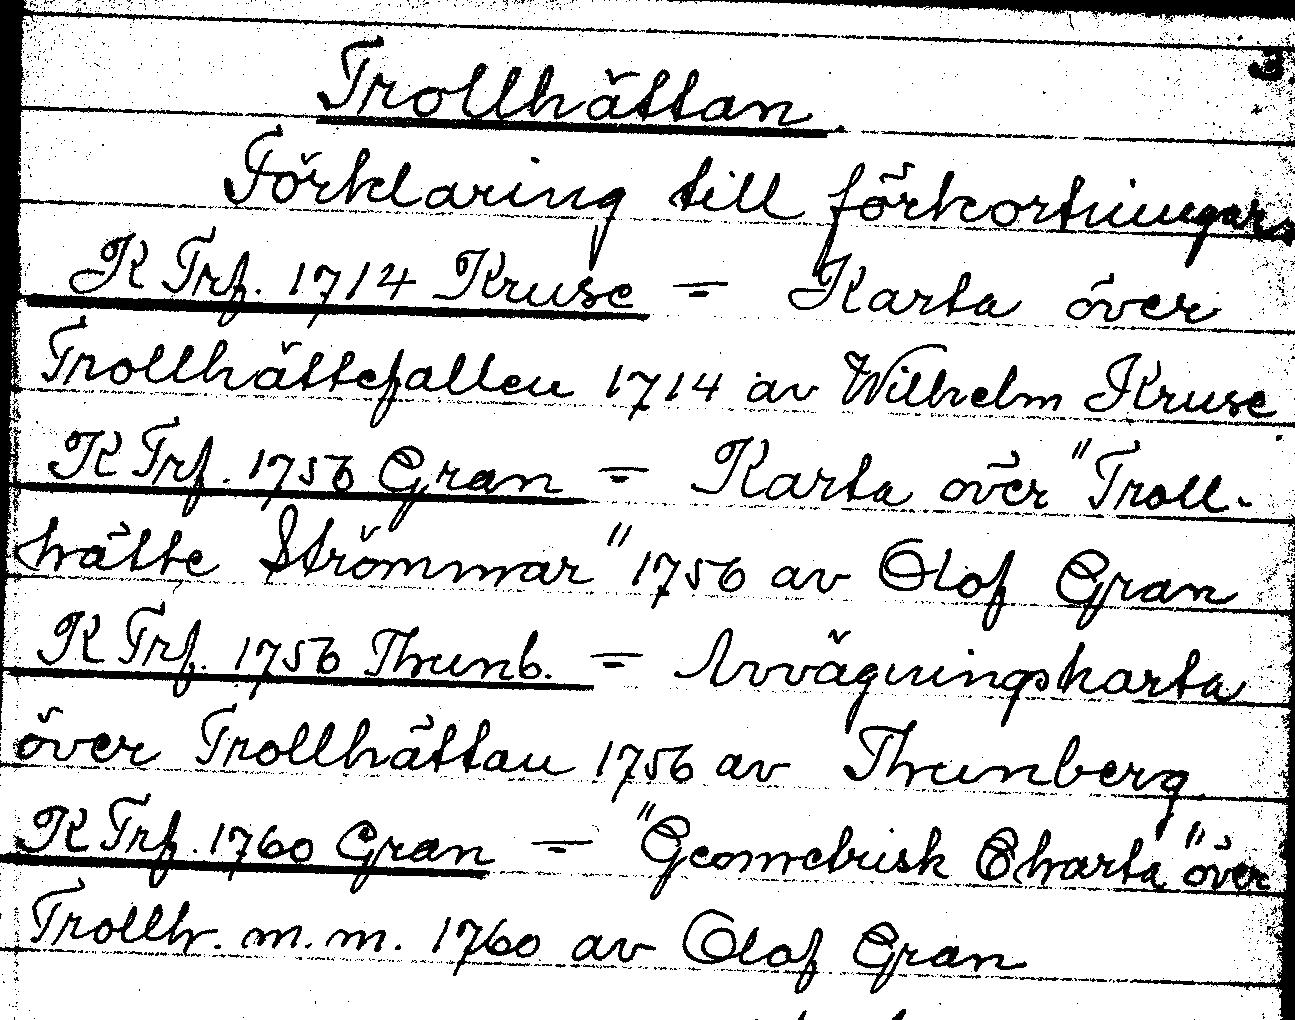 3.
Trollhättan.
Förklaring till förkortningar
K Trf. 1714 Kruse = Karta över
Trollhättefallen 1714 av Wilhelm Kruse
K Trf. 1756 Gran = Karta över "Troll-
hätte Strömmar" 1756 av Olof Gran
K Trf. 1756 Thunb. = Avvägningskarta
över Trollhättan 1756 av Thunberg
K Trf. 1760 Gran = "Geometrisk Charta" över
Trollh. m. m. 1760 av Olof Gran